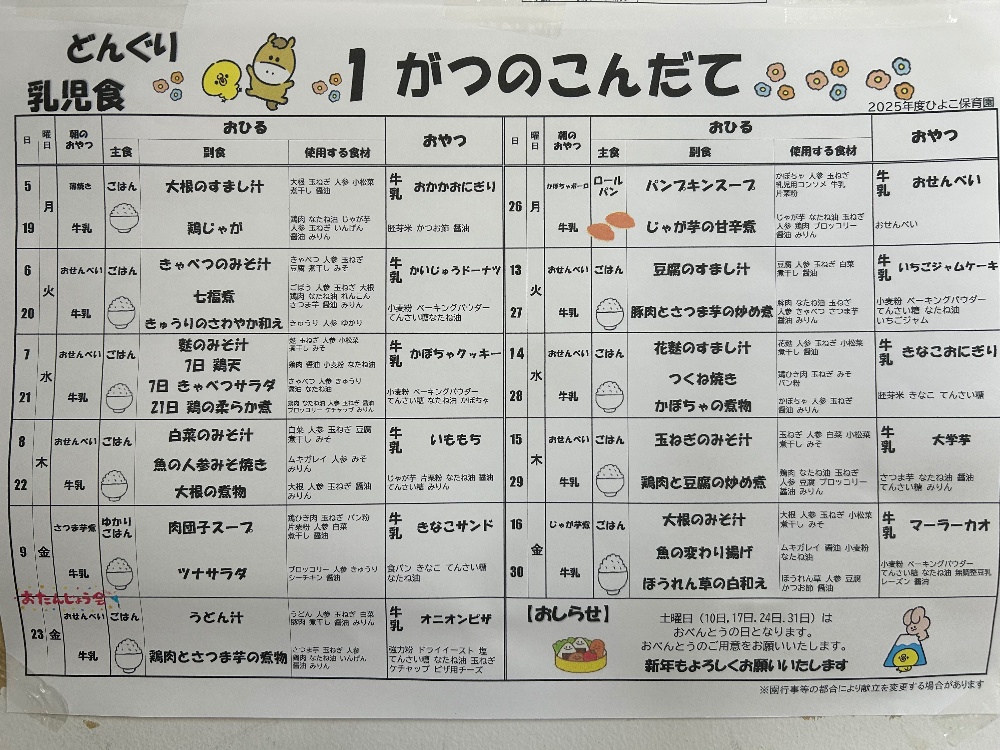 どんぐり
乳児食
1 がつのこんだて
2025年度ひよこ保育園
日 曜日 朝のおやつ おひる おやつ
主食 副食 使用する食材
5 月 ごはん 大根のすまし汁 大根 玉ねぎ 人参 小松菜 牛乳 おかかおにぎり
煮干し 醤油
19 牛乳 鶏じゃが 鶏肉 なたね油 じゃが芋 胚芽米 かつお節 醤油
人参 玉ねぎ いんげん
醤油 みりん
6 火 おせんべい ごはん きゃべつのみそ汁 きゃべつ 人参 玉ねぎ 牛乳 かいじゅうドーナツ
豆腐 煮干し みそ
20 牛乳 七福煮 ごぼう 人参 玉ねぎ 大根 小麦粉 ベーキングパウダー
鶏肉 なたね油 れんこん てんさい糖なたね油
さつま芋 醤油 みりん
きゅうりのさわやか和え きゅうり 人参 ゆかり
7 水 おせんべい ごはん 麩のみそ汁 麩 玉ねぎ 人参 小松菜 牛乳 かぼちゃクッキー
煮干し みそ
7日 鶏天 鶏肉 醤油 小麦粉 なたね油
21 牛乳 7日 きゃべつサラダ きゃべつ 人参 きゅうり 小麦粉 ベーキングパウダー
醤油 なたね油 てんさい糖 なたね油 かぼちゃ
21日 鶏の柔らか煮 鶏肉 なたね油 人参 玉ねぎ 醤油
ブロッコリー ケチャップ みりん
8 木 おせんべい ごはん 白菜のみそ汁 白菜 人参 玉ねぎ 豆腐 牛乳 いももち
煮干し みそ
22 牛乳 魚の人参みそ焼き ムキガレイ 人参 みそ じゃが芋 片栗粉 なたね油 醤油
みりん てんさい糖 みりん
大根の煮物 大根 人参 玉ねぎ 醤油
みりん
9 金 さつま芋煮 ゆかりごはん 肉団子スープ 鶏ひき肉 玉ねぎ パン粉 牛乳 きなこサンド
片栗粉 人参 白菜
煮干し 醤油
牛乳 ツナサラダ ブロッコリー 人参 きゅうり 食パン きなこ てんさい糖
シーチキン 醤油 なたね油
おたんじょう会
23 金 おせんべい ごはん うどん汁 うどん 人参 玉ねぎ 白菜 牛乳 オニオンピザ
豚肉 煮干し 醤油 みりん
牛乳 鶏肉とさつま芋の煮物 さつま芋 玉ねぎ 人参 強力粉 ドライイースト 塩
鶏肉 なたね油 いんげん てんさい糖 なたね油 玉ねぎ
醤油 みりん ケチャップ ピザ用チーズ
日 曜日 朝のおやつ おひる おやつ
主食 副食 使用する食材
26 月 かぼちゃボーロ ロールパン パンプキンスープ かぼちゃ 人参 玉ねぎ 牛乳 おせんべい
乳児用コンソメ 牛乳
片栗粉
牛乳 じゃが芋の甘辛煮 じゃが芋 なたね油 玉ねぎ おせんべい
人参 鶏肉 ブロッコリー
醤油 みりん
13 火 おせんべい ごはん 豆腐のすまし汁 豆腐 人参 玉ねぎ 白菜 牛乳 いちごジャムケーキ
煮干し 醤油
27 牛乳 豚肉とさつま芋の炒め煮 豚肉 なたね油 玉ねぎ 小麦粉 ベーキングパウダー
人参 きゃべつ さつま芋 てんさい糖 なたね油
醤油 みりん いちごジャム
14 水 おせんべい ごはん 花麩のすまし汁 花麩 人参 玉ねぎ 小松菜 牛乳 きなこおにぎり
煮干し 醤油
28 牛乳 つくね焼き 鶏ひき肉 玉ねぎ みそ 胚芽米 きなこ てんさい糖
パン粉
かぼちゃの煮物 かぼちゃ 人参 玉ねぎ
醤油 みりん
15 木 おせんべい ごはん 玉ねぎのみそ汁 玉ねぎ 人参 白菜 小松菜 牛乳 大学芋
煮干し みそ
29 牛乳 鶏肉と豆腐の炒め煮 鶏肉 なたね油 玉ねぎ さつま芋 なたね油 醤油
人参 豆腐 ブロッコリー てんさい糖 みりん
醤油 みりん
16 金 じゃが芋煮 ごはん 大根のみそ汁 大根 人参 玉ねぎ 小松菜 牛乳 マーラーカオ
煮干し みそ
30 牛乳 魚の変わり揚げ ムキガレイ 醤油 小麦粉 小麦粉 ベーキングパウダー
なたね油 てんさい糖 なたね油 無調整豆乳
ほうれん草の白和え ほうれん草 人参 豆腐 レーズン 醤油
かつお節 醤油
【おしらせ】
土曜日（10日,17日、24日、31日）は
おべんとうの日となります。
おべんとうのご用意をお願いいたします。
新年もよろしくお願いいたします
※園行事等の都合により献立を変更する場合があります